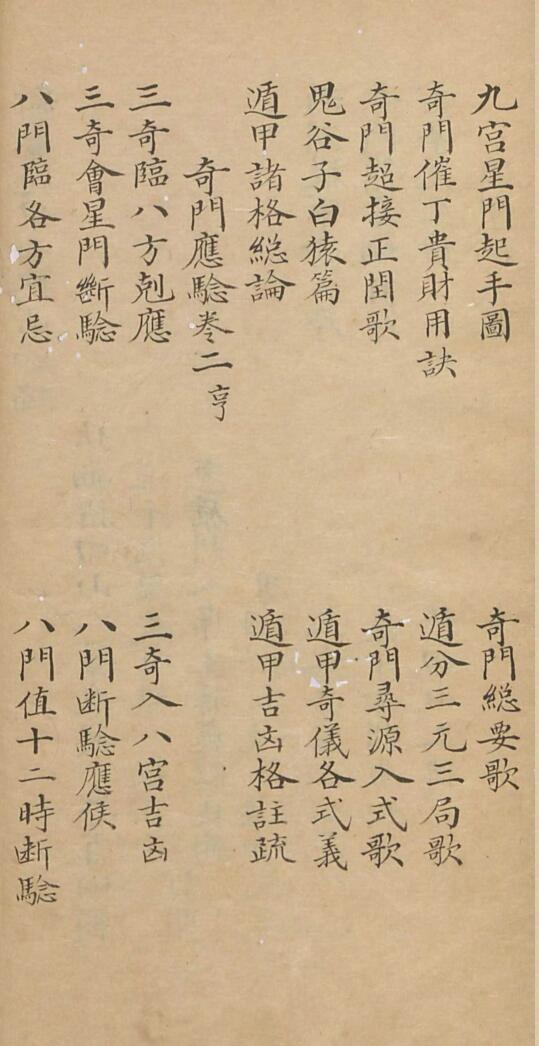 九宮星門起手圖
奇門總要歌
奇門催丁貴財用訣
遁分三元三局歌
奇門超接正閏歌
奇門尋源入式歌
鬼谷子白猿篇
遁甲奇儀各式義
遁甲諸格総論
遁甲吉凶格註疏
奇門應驗卷二 亨
三奇臨八方剋應
三奇入八宮吉凶
三奇會星門斷驗
八門断驗應候
八門臨各方宜忌
八門值十二時断驗